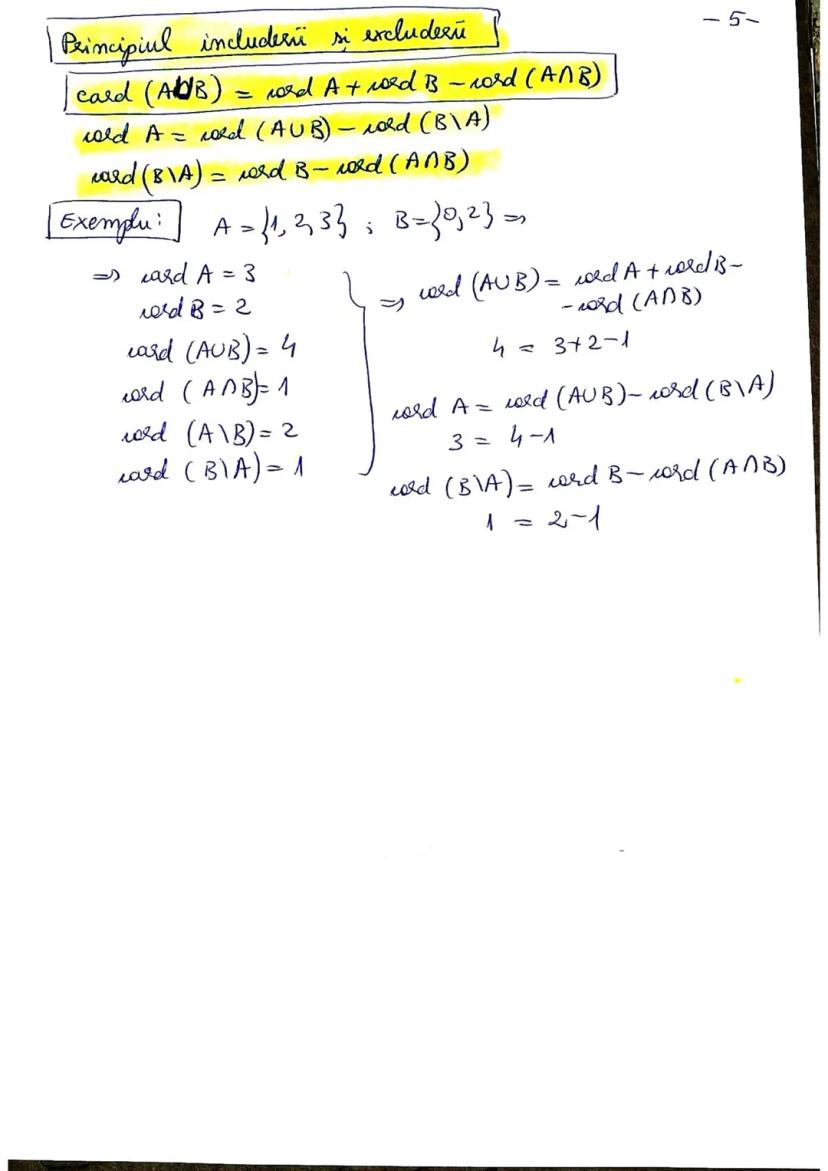 - 5 -
Principiul includerii și excluderii
card (A∪B) = card A + card B - card (A∩B)
card A = card (A∪B) - card (B\A)
card (B\A) = card B - card (A∩B)
Exemplu: A = {1, 2, 3} ; B = {0, 2} ⇒
⇒ card A = 3
card B = 2
card (A∪B) = 4
card (A∩B) = 1
card (A\B) = 2
card (B\A) = 1
⇒ card (A∪B) = card A + card B -
- card (A∩B)
4 = 3+2-1
card A = card (A∪B) - card (B\A)
3 = 4-1
card (B\A) = card B - card (A∩B)
1 = 2-1